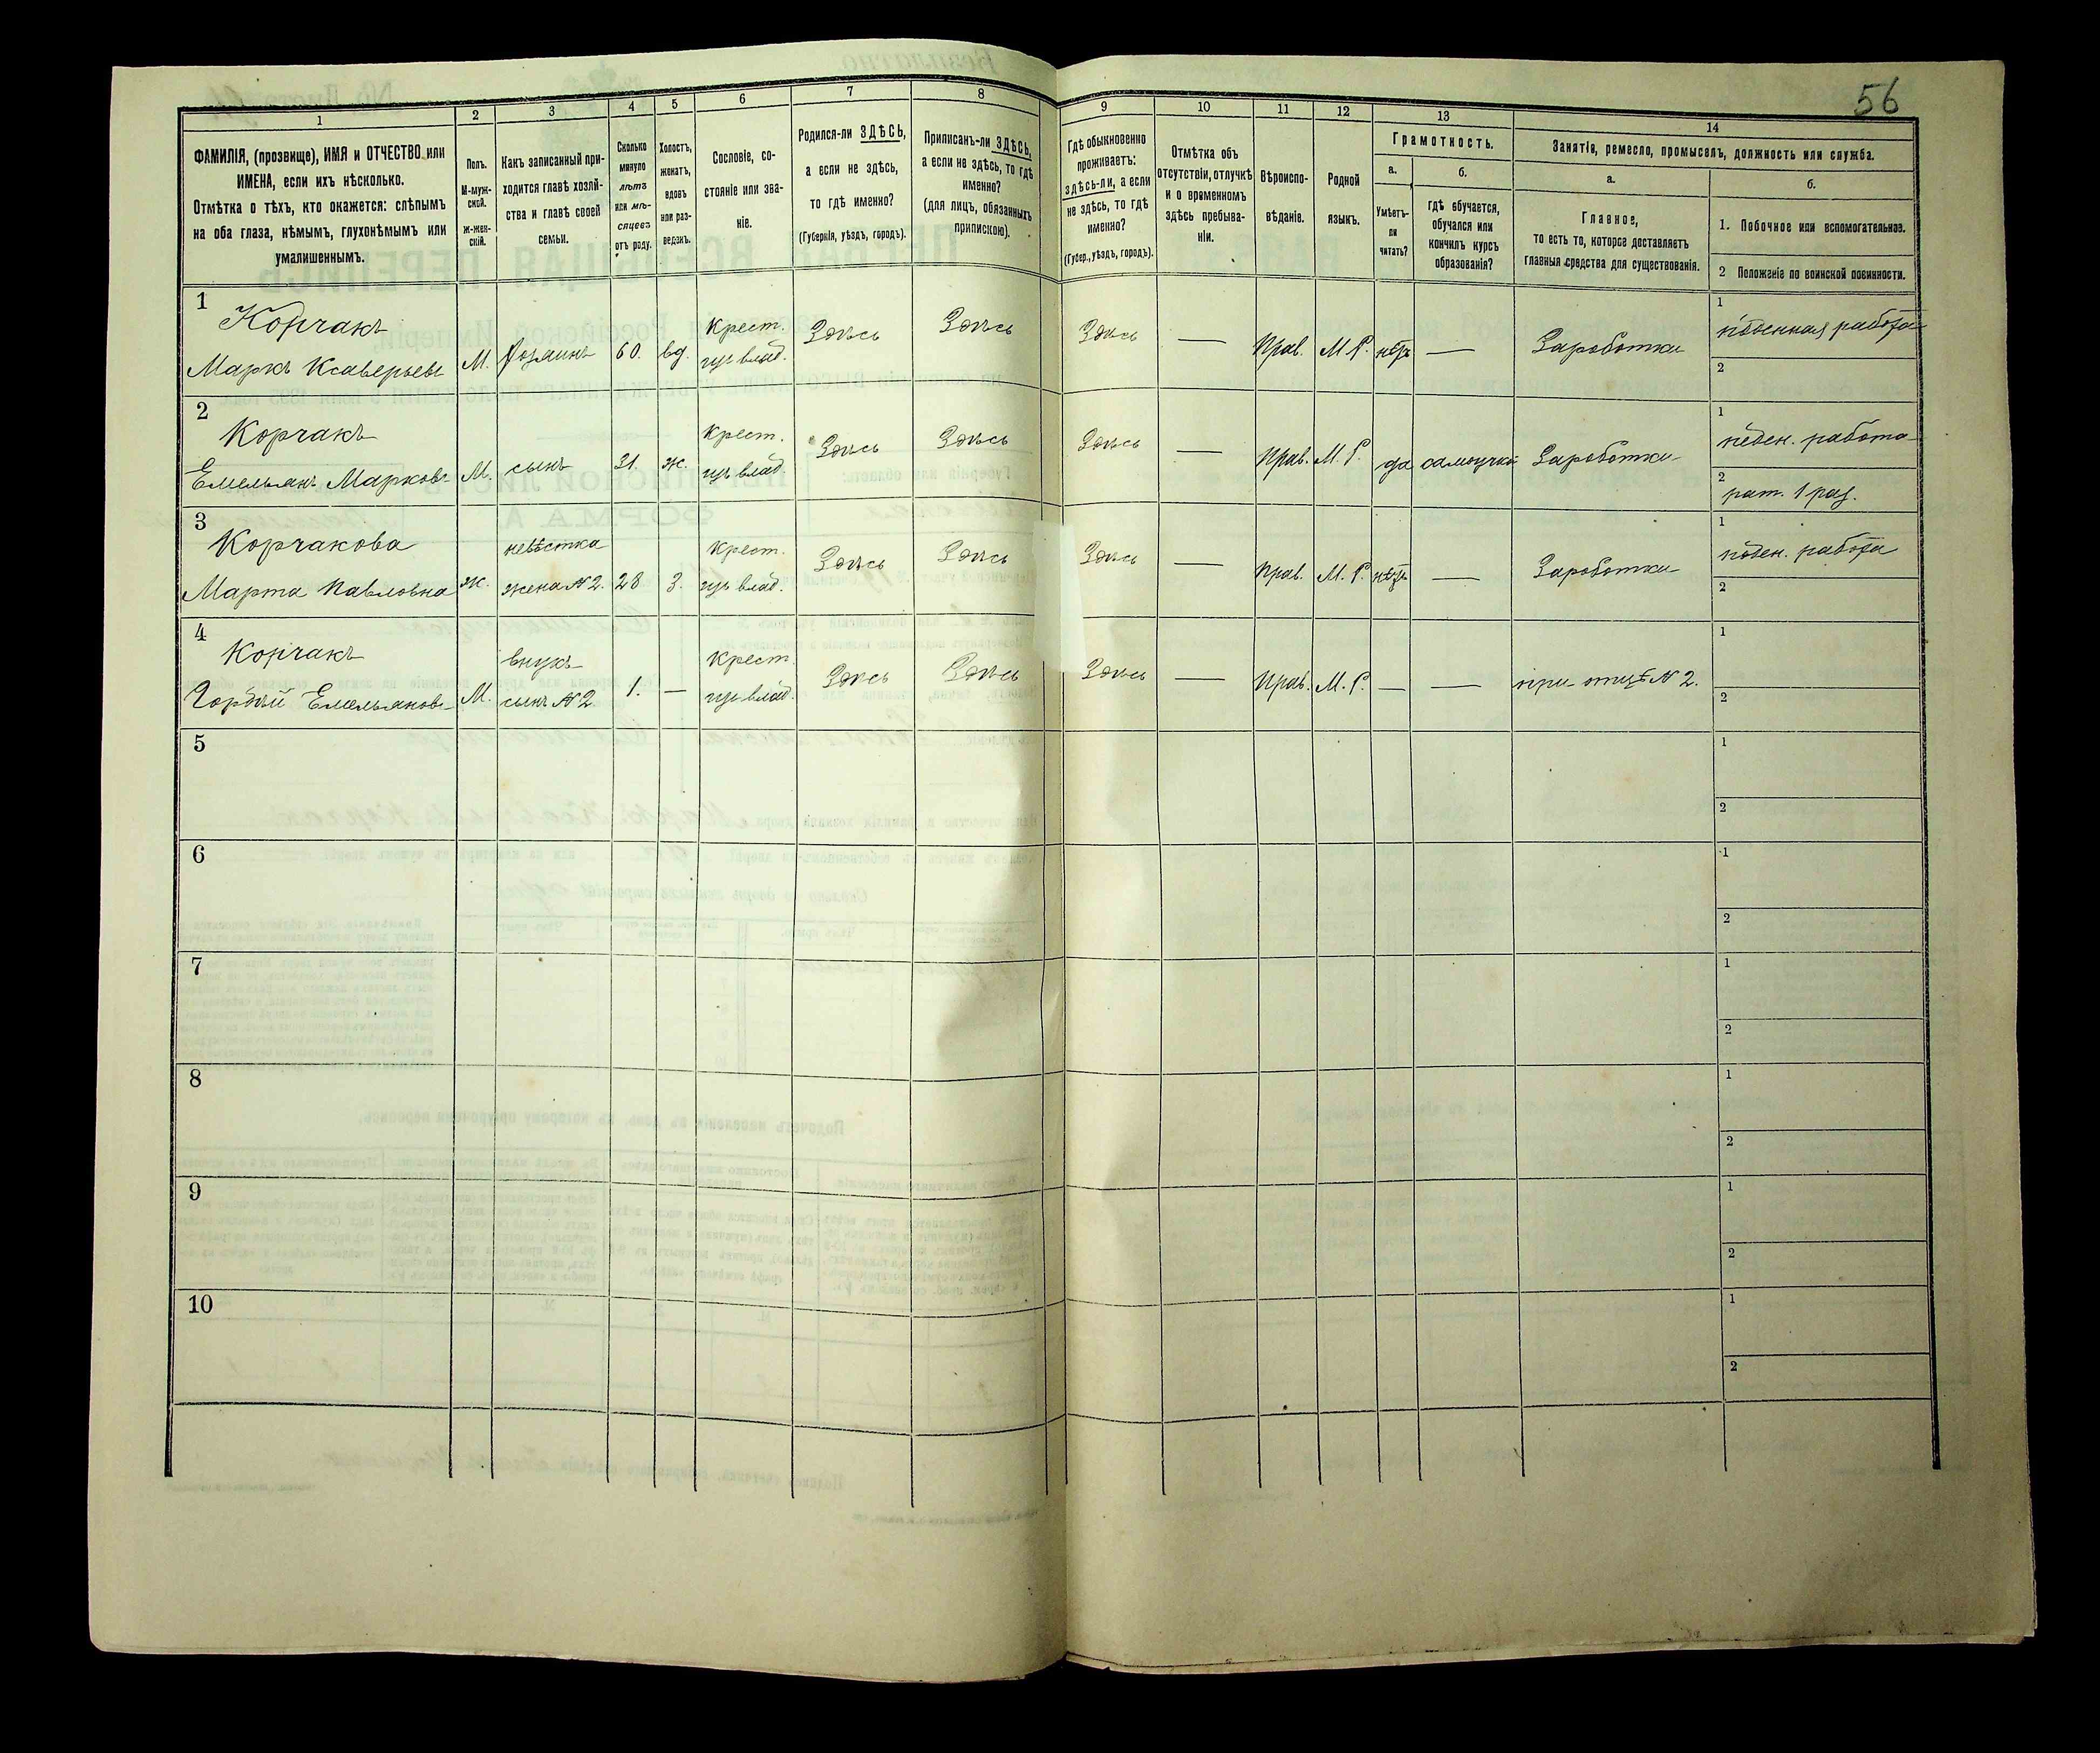 56
1
2
3
4
5
6
7
8
9
10
11
12
13
14
ФАМИЛІЯ, (прозвище), ИМЯ и ОТЧЕСТВО или
ИМЕНА, если ихъ нѣсколько.
Отмѣтка о тѣхъ, кто окажется: слѣпымъ
на оба глаза, нѣмымъ, глухонѣмымъ или
умалишеннымъ.
Полъ.
М-муж-
ской.
Ж-жен-
скій.
Какъ записанный при-
ходится главѣ хозяй-
ства и главѣ своей
семьи.
Сколько
минуло
лѣтъ
или мѣ-
сяцевъ
отъ роду.
Холостъ,
женатъ,
вдовъ
или раз-
веденъ.
Сословіе, со-
стояніе или зва-
ніе.
Родился-ли ЗДѢСЬ,
а если не здѣсь,
то гдѣ именно?
(Губернія, уѣздъ, городъ).
Приписанъ-ли ЗДѢСЬ,
а если не здѣсь, то гдѣ
именно?
(для лицъ, обязанныхъ
припискою).
Гдѣ обыкновенно
проживаетъ:
здѣсь-ли, а если
не здѣсь, то гдѣ
именно?
(Губер., уѣздъ, городъ).
Отмѣтка объ
отсутствіи, отлучкѣ
и о временномъ
здѣсь пребыва-
ніи.
Вѣроиспо-
вѣданіе.
Родной
языкъ.
Грамотность.
а.
Умѣетъ-
ли
читать?
б.
гдѣ обучается,
обучался или
кончилъ курсъ
образованія?
Занятіе, ремесло, промыселъ, должность или служба.
а.
Главное,
то есть то, которое доставляетъ
главныя средства для существованія.
б.
1. Побочное или вспомогательное.
2 Положеніе по воинской повинности.
1
Корчакъ
Маркъ Ксаверьевъ
М.
хозяинъ
60.
вд.
Крест.
влад.
Здѣсь
Здѣсь
Здѣсь
—
Прав.
М. Р.
нѣтъ
—
Заработки
1
поденная работа
2
2
Корчакъ
Емельянъ Марковъ
М.
сынъ
31.
ж.
Крест.
влад.
Здѣсь
Здѣсь
Здѣсь
—
Прав.
М. Р.
да
самоучка
Заработки
1
поден. работа
2
рат. 1 раз.
3
Корчакова
Марта Павловна
ж.
невѣстка
жена N 2.
28
З.
Крест.
влад.
Здѣсь
Здѣсь
Здѣсь
—
Прав.
М. Р.
нѣтъ
—
Заработки
1
поден. работа
2
4
Корчакъ
Гордѣй Емельяновъ
М.
внукъ
сынъ N 2
1.
—
Крест.
влад.
Здѣсь
Здѣсь
Здѣсь
—
Прав.
М. Р.
—
—
при отцѣ N 2.
1
2
5
1
2
6
1
2
7
1
2
8
1
2
9
1
2
10
1
2